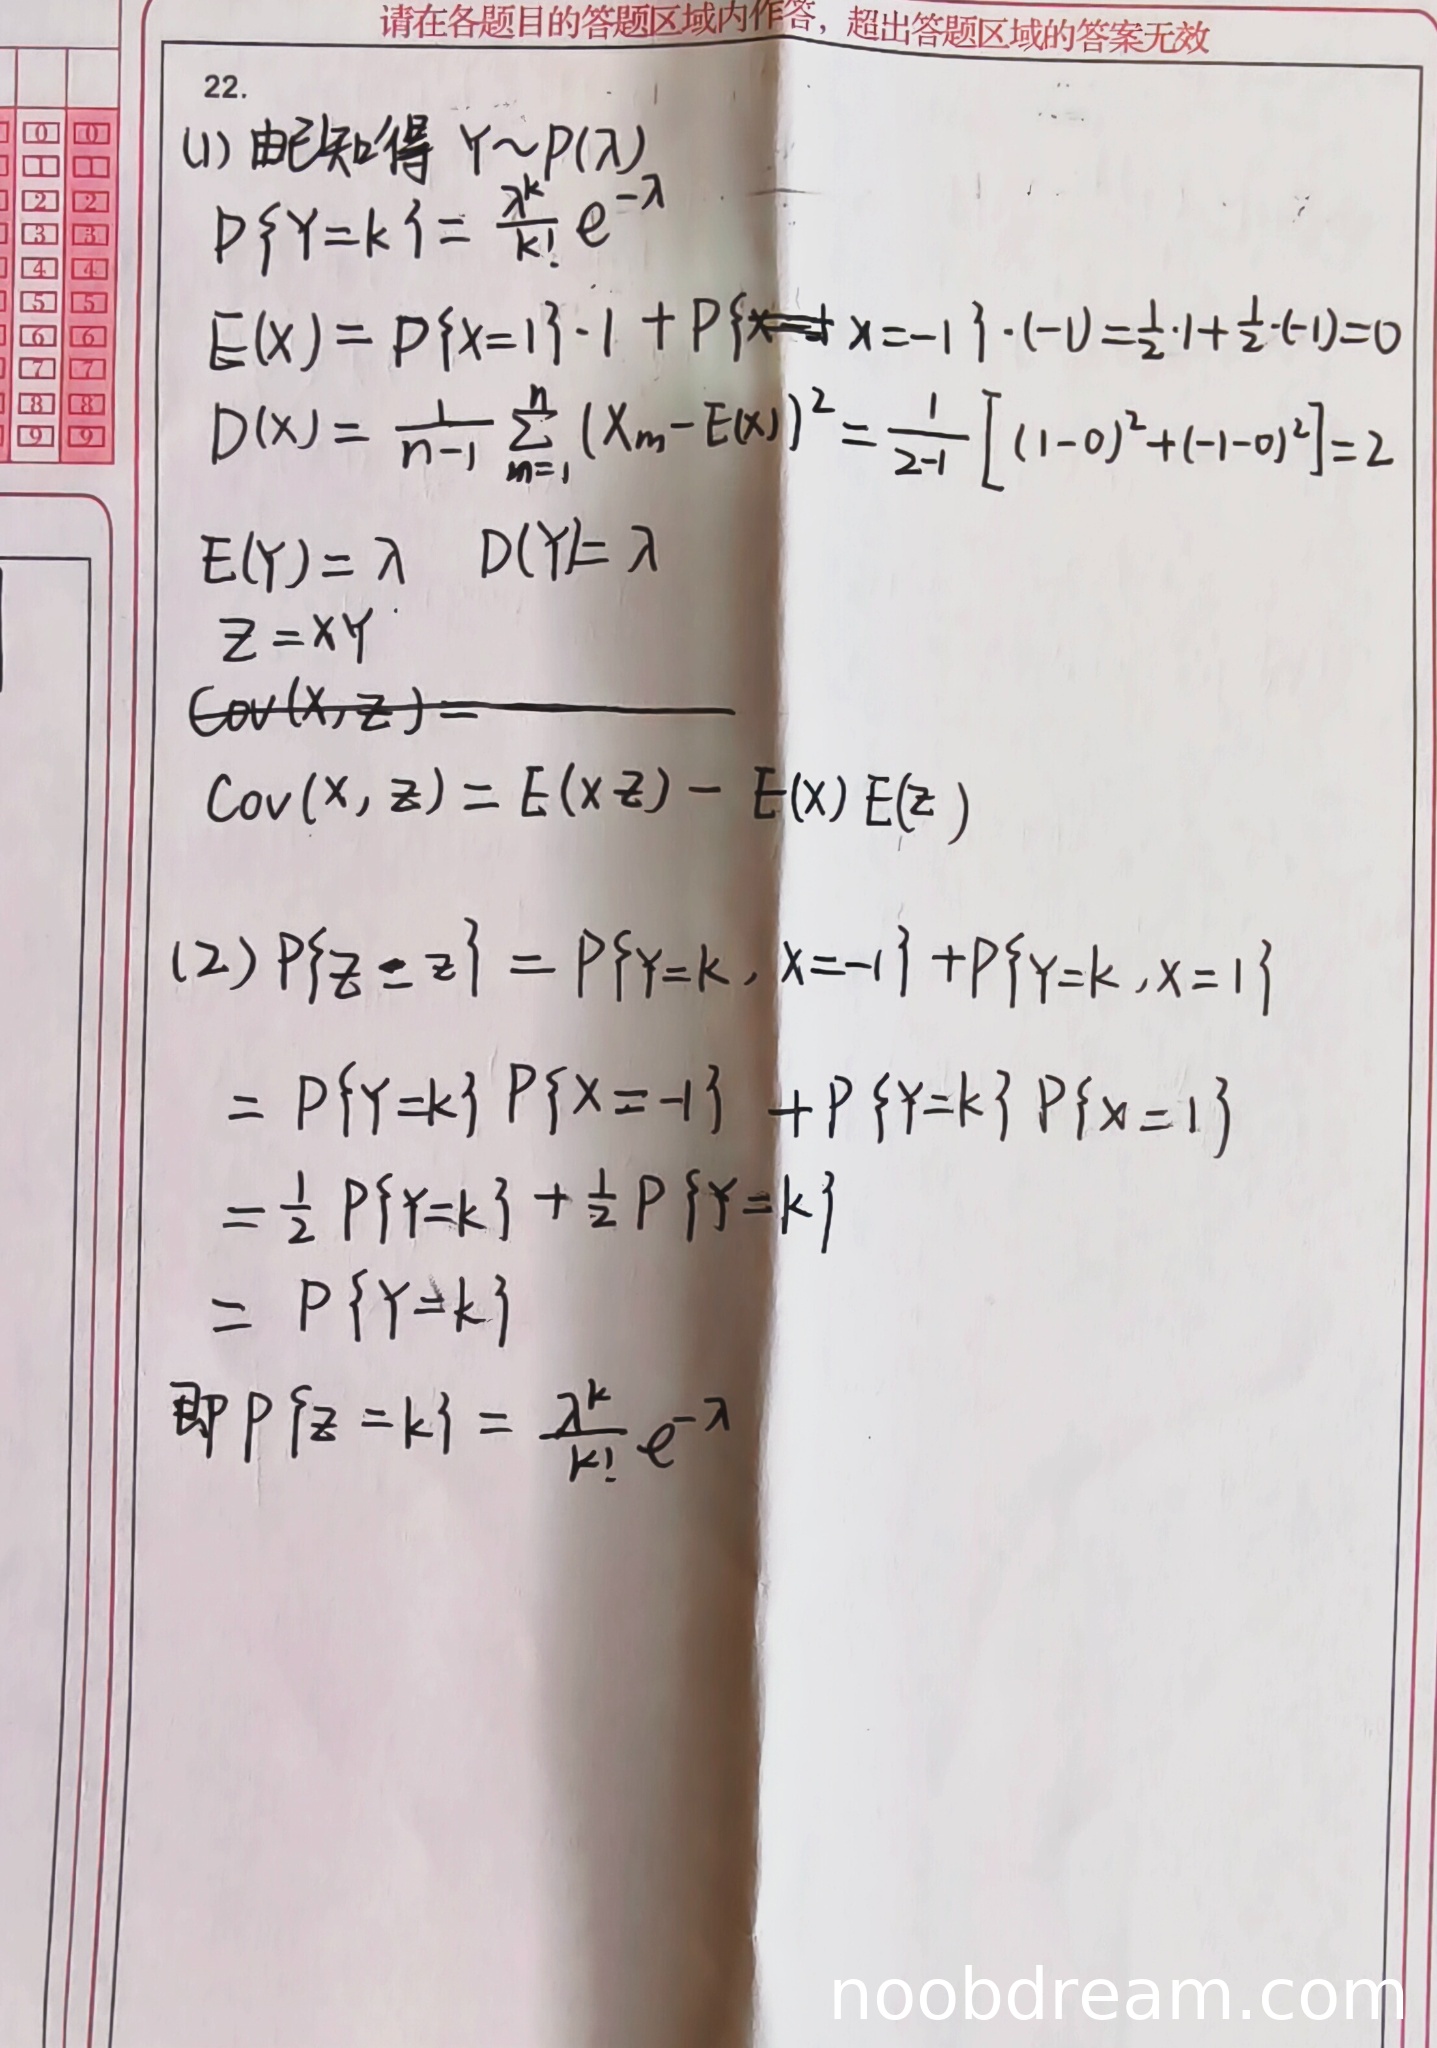 请在各题目的答题区域内作答，超出答题区域的答案无效
22.
(1) 由已知得 Y~P(λ)
P{Y=k} = λ^k/k! e^-λ
E(X) = P{X=1}·1 + P{X=-1}·(-1) = 1/2·1+1/2·(-1)=0
D(X) = 1/(n-1) ∑_{m=1}^{n} (X_m-E(X))^2 = 1/(2-1) [(1-0)^2+(-1-0)^2]=2
E(Y) = λ D(Y)= λ
Z = XY
Cov(X, Z) =
Cov(X, Z) = E(XZ) - E(X) E(Z)
(2) P{Z = z} = P{Y=k, X=-1} + P{Y=k, X=1}
= P{Y=k} P{X=-1} + P{Y=k} P{X=1}
= 1/2 P{Y=k} + 1/2 P{Y=k}
= P{Y=k}
即 P{Z=k} = λ^k/k! e^-λ
0 0
1 1
2 2
3 3
4 4
5 5
6 6
7 7
8 8
9 9
noobdream.com